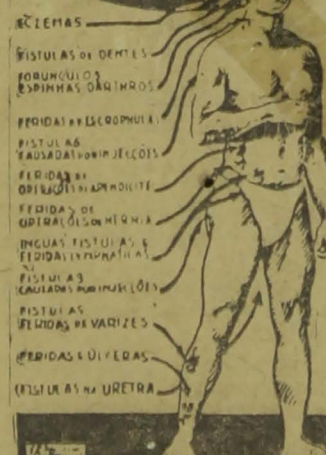 ECZEMAS
FISTULAS DE DENTES
FORUNCULOS
ESPINHAS DARTHROS
FERIDAS DE ESCROPHULAS
FISTULAS
CAUSADAS POR INJECÇÕES
FERIDAS DE
OPERAÇÕES DE APENDICITE
FERIDAS DE
OPERAÇÕES DE HERNIA
INGUAS FISTULAS E
FERIDAS LYMPHATICAS
FISTULAS
CAUSADAS POR INJECÇÕES
FISTULAS
FERIDAS DE VARIZES
FERIDAS E ÚLCERAS
FISTULAS NA URETRA